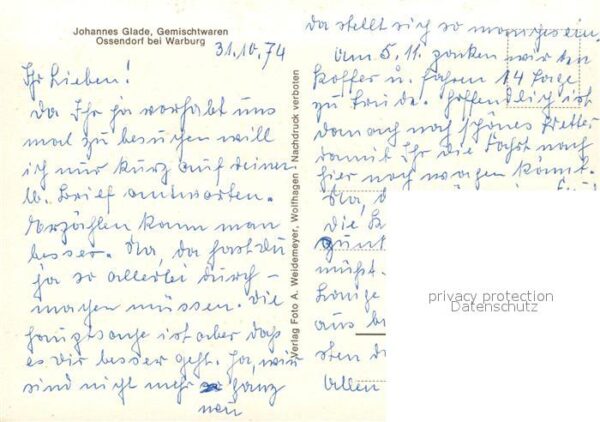 Johannes Glade, Gemischtwaren
Ossendorf bei Warburg
31.10.74
Ihr Lieben!
Da Ihr ja vorhabt uns
mal zu besuchen will
ich nur kurz auf deinen
lb. Brief antworten.
Erzählen kann man
besser. Na, da hast du
ja so allerlei durch-
machen müssen. Die
Hauptsache ist aber daß
es Dir besser geht. Ja, wir
sind nicht mehr ganz
neu
Verlag Foto A. Weidemeyer, Wolfhagen - Nachdruck verboten
da stellt sich so manches ein.
Am 5.11. packen wir den
Koffer u. fahren 14 Tage
zu Hoffendlich ist
danach noch schönes Wetter
damit Ihr die Fahrt nach
hier noch wagen könnt.
Na,
die
müßt.
aus
sten
Allen
privacy protection
Datenschutz